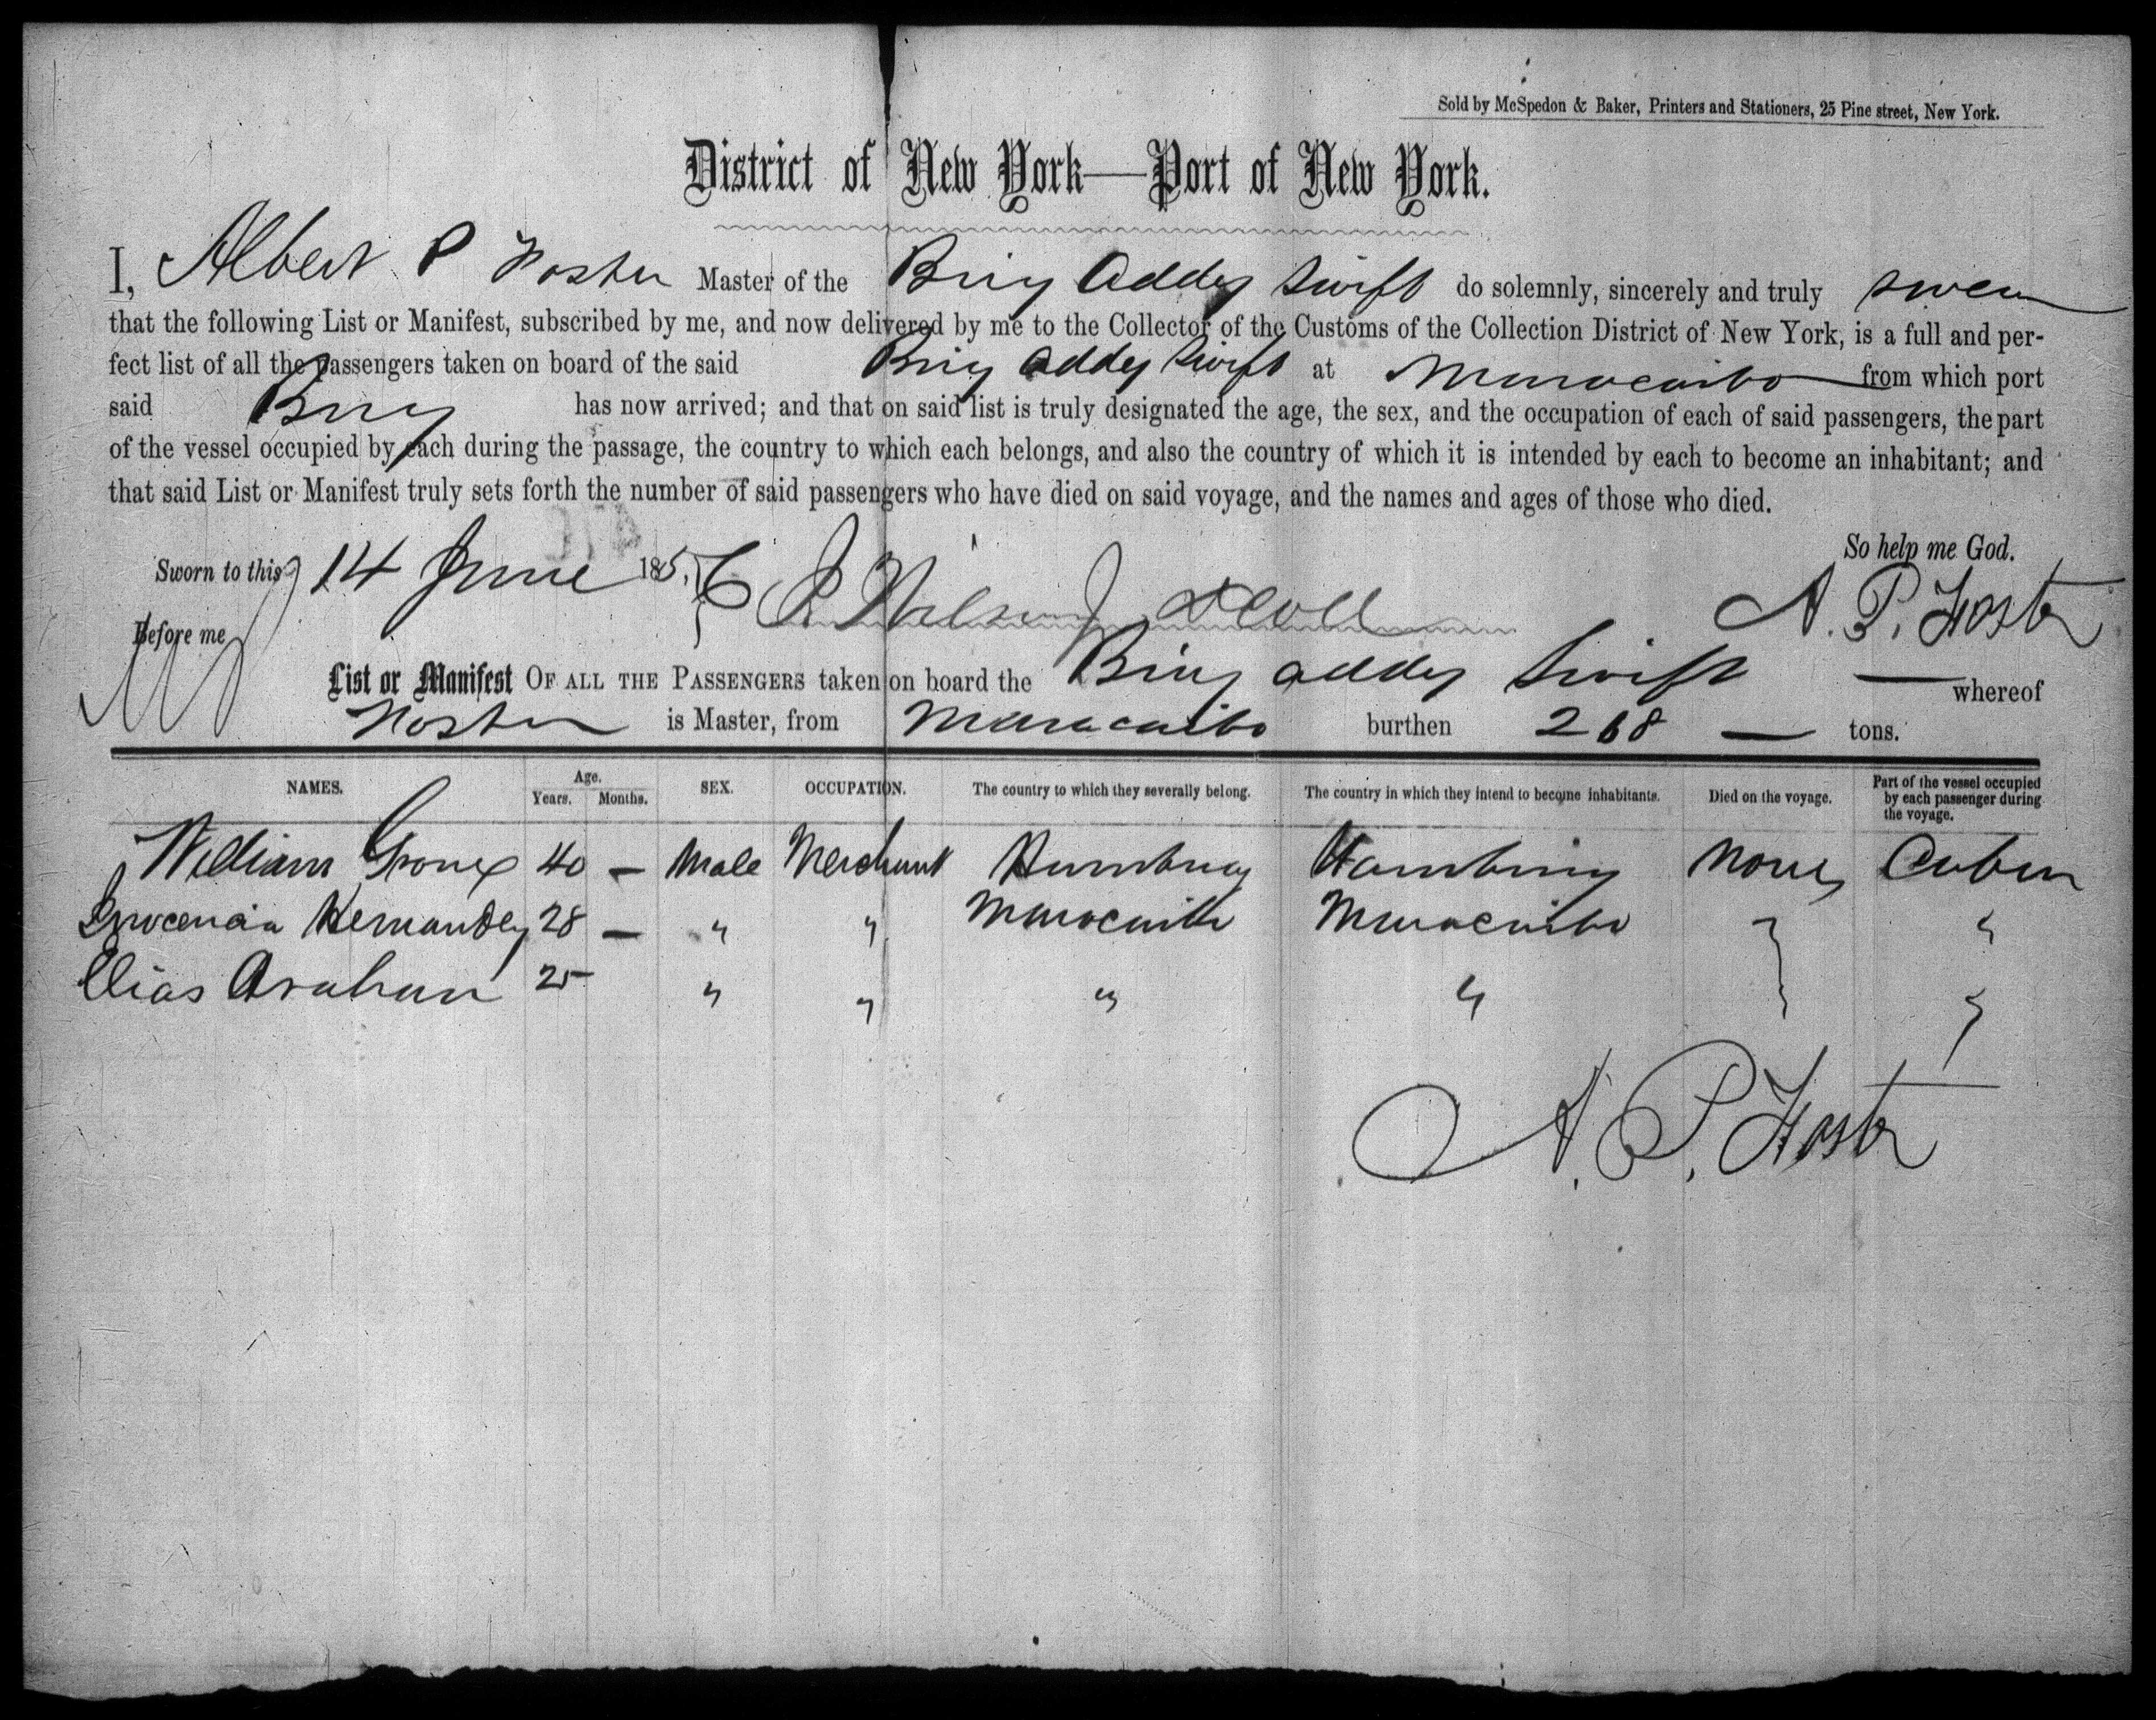 Sold by McSpedon & Baker, Printers and Stationers, 25 Pine street, New York.
District of New York—Port of New York.
I, Albert P Foster Master of the Brig Addey Swift do solemnly, sincerely and truly swear
that the following List or Manifest, subscribed by me, and now delivered by me to the Collector of the Customs of the Collection District of New York, is a full and per-
fect list of all the passengers taken on board of the said Brig Addey Swift at Maracaibo from which port
said Brig has now arrived; and that on said list is truly designated the age, the sex, and the occupation of each of said passengers, the part
of the vessel occupied by each during the passage, the country to which each belongs, and also the country of which it is intended by each to become an inhabitant; and
that said List or Manifest truly sets forth the number of said passengers who have died on said voyage, and the names and ages of those who died.
So help me God.
Sworn to this 14 June 1856 A. P. Foster
Before me
List or Manifest OF ALL THE PASSENGERS taken on board the Brig Addey Swift — whereof
Foster is Master, from Maracaibo burthen 268 — tons.
NAMES. Age. Years. Months. SEX. OCCUPATION. The country to which they severally belong. The country in which they intend to become inhabitants. Died on the voyage. Part of the vessel occupied by each passenger during the voyage.
William 40 — Male Merchant Hamburg Hamburg None Cabin
Inocencia Hernandez 28 — " " Maracaibo Maracaibo " "
Elias 25 " " " " " "
A. P. Foster